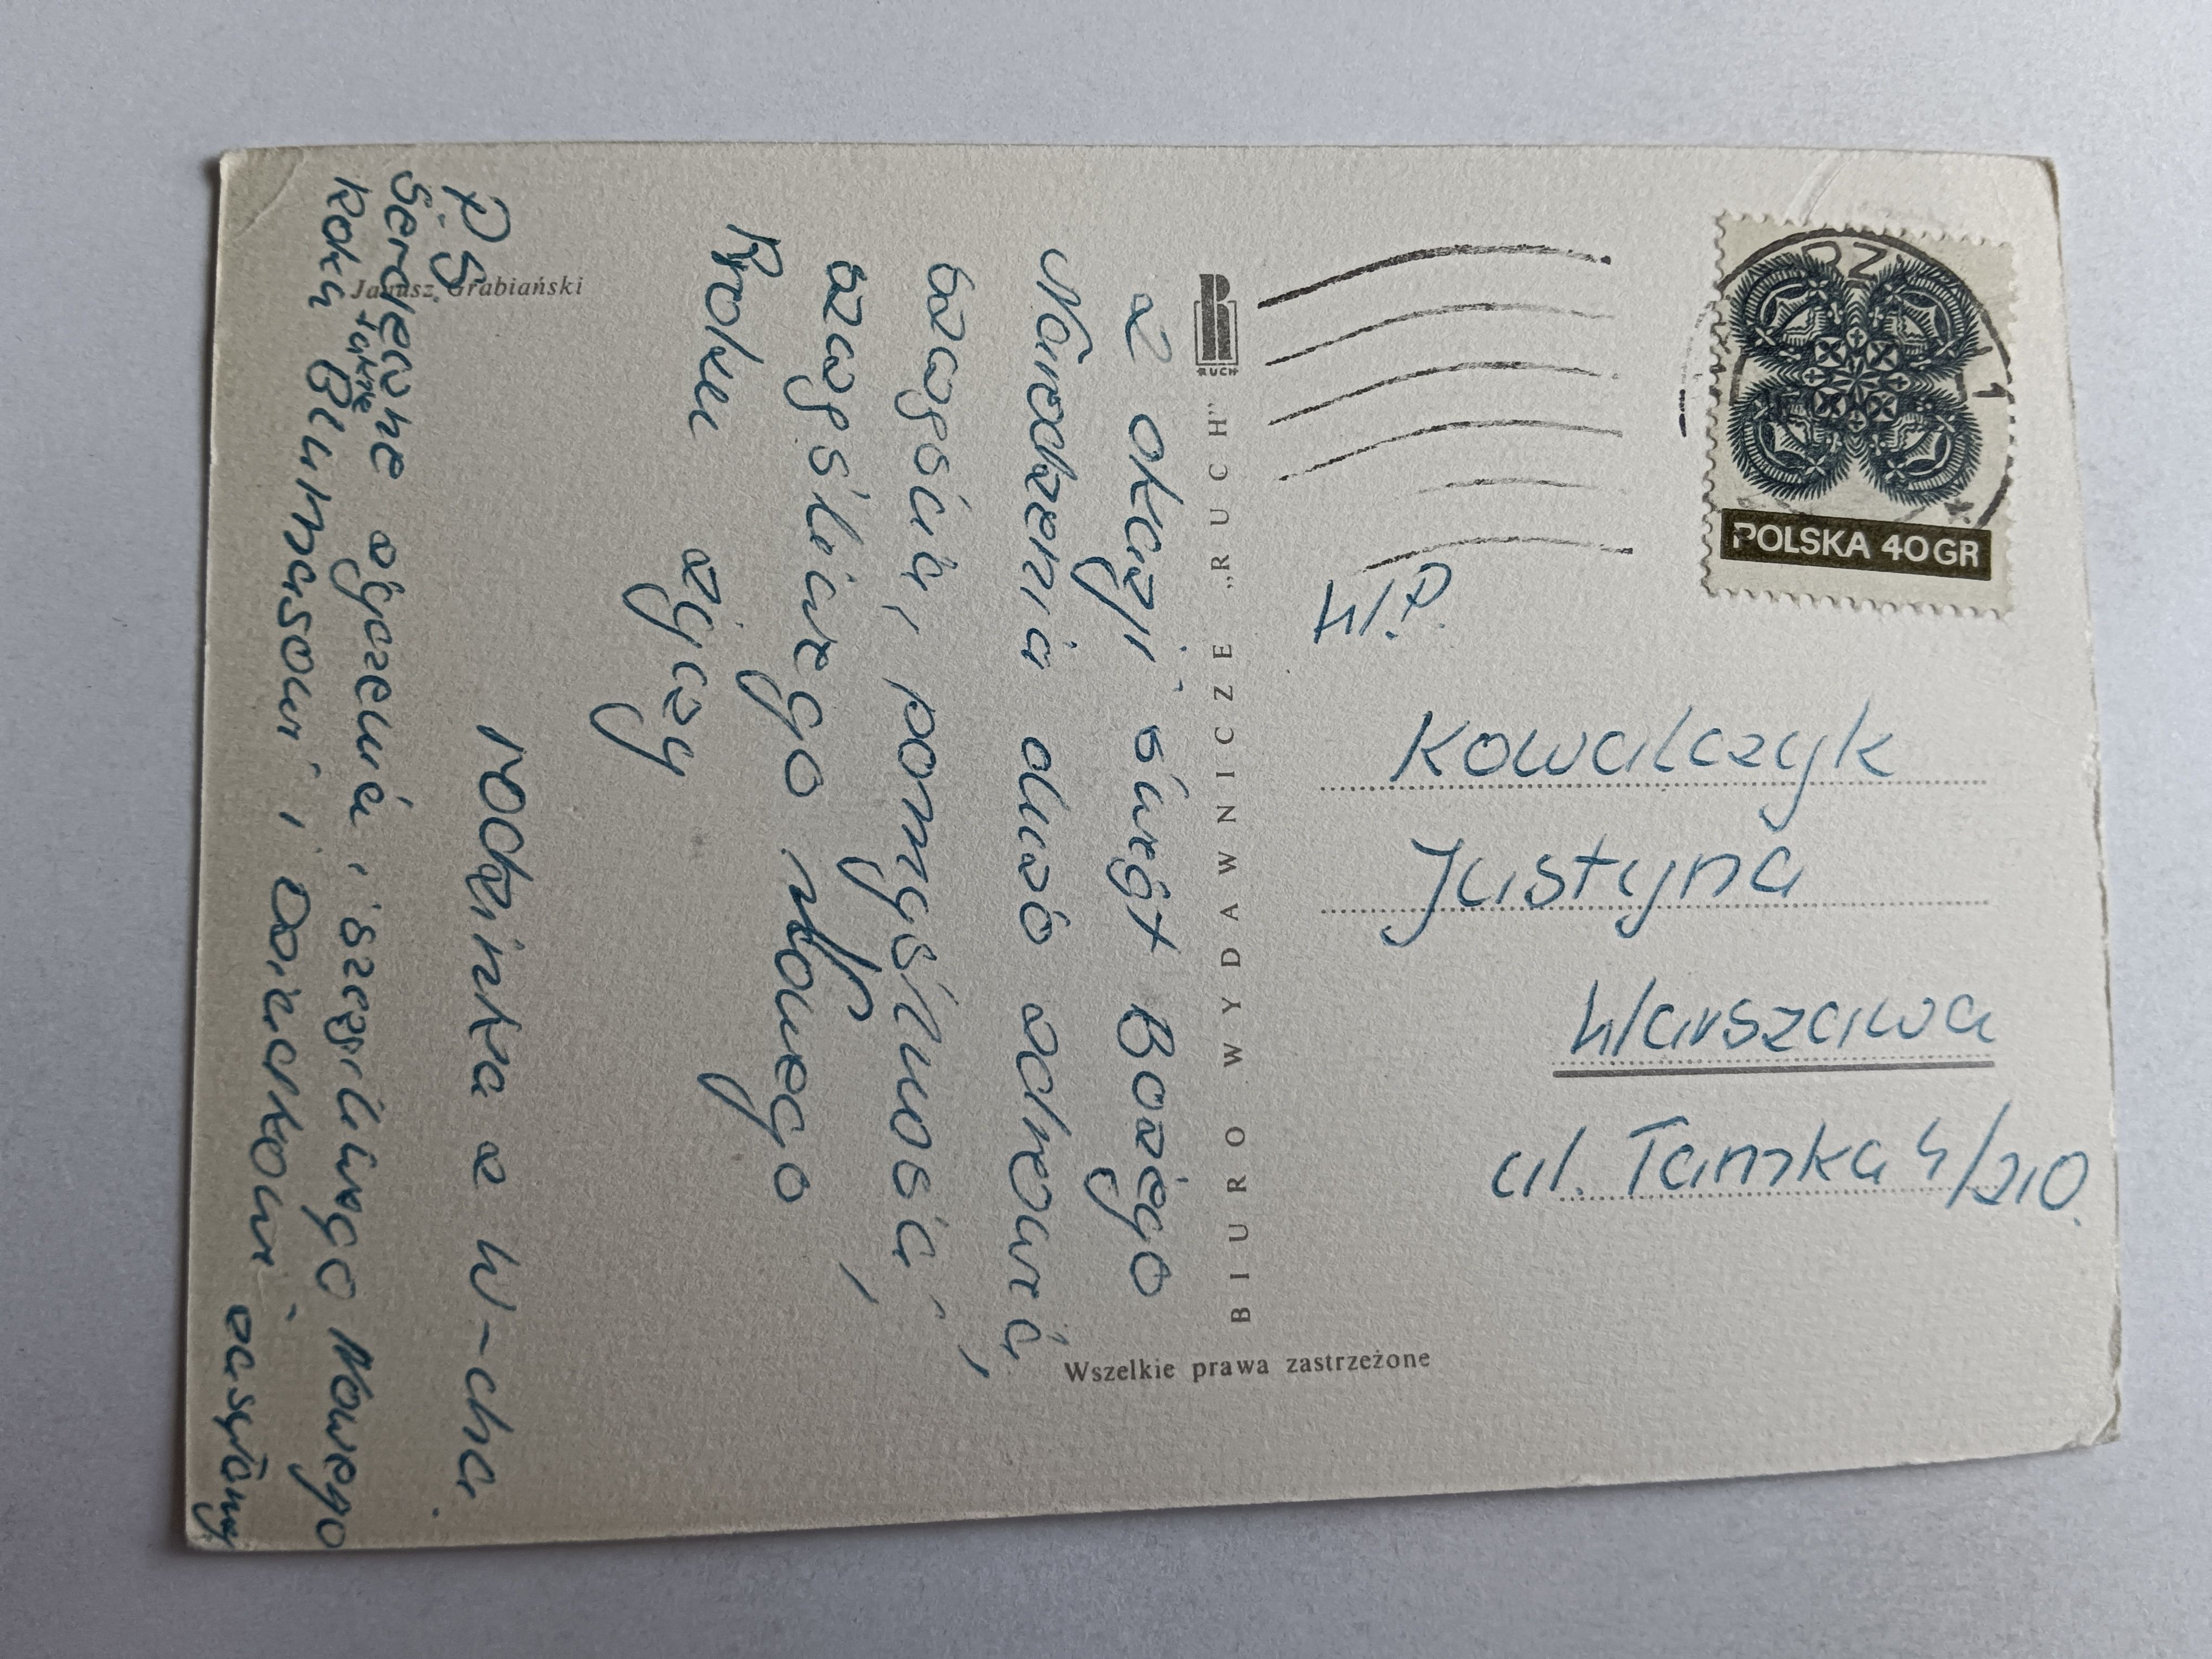 Z okazji świąt Bożego
Narodzenia dużo zdrowia,
szczęścia, pomyślności,
szczęśliwego Nowego
Roku życzy
rodzinka z W-cha.
PS
Serdeczne życzenia i szczęśliwego Nowego
Roku także
i dzieciakom zasyłamy
Janusz Grabiański
RUCH
BIURO WYDAWNICZE „RUCH”
Wszelkie prawa zastrzeżone
POLSKA 40 GR
W.P.
Kowalczyk
Justyna
Warszawa
ul. Tamka 4/210.